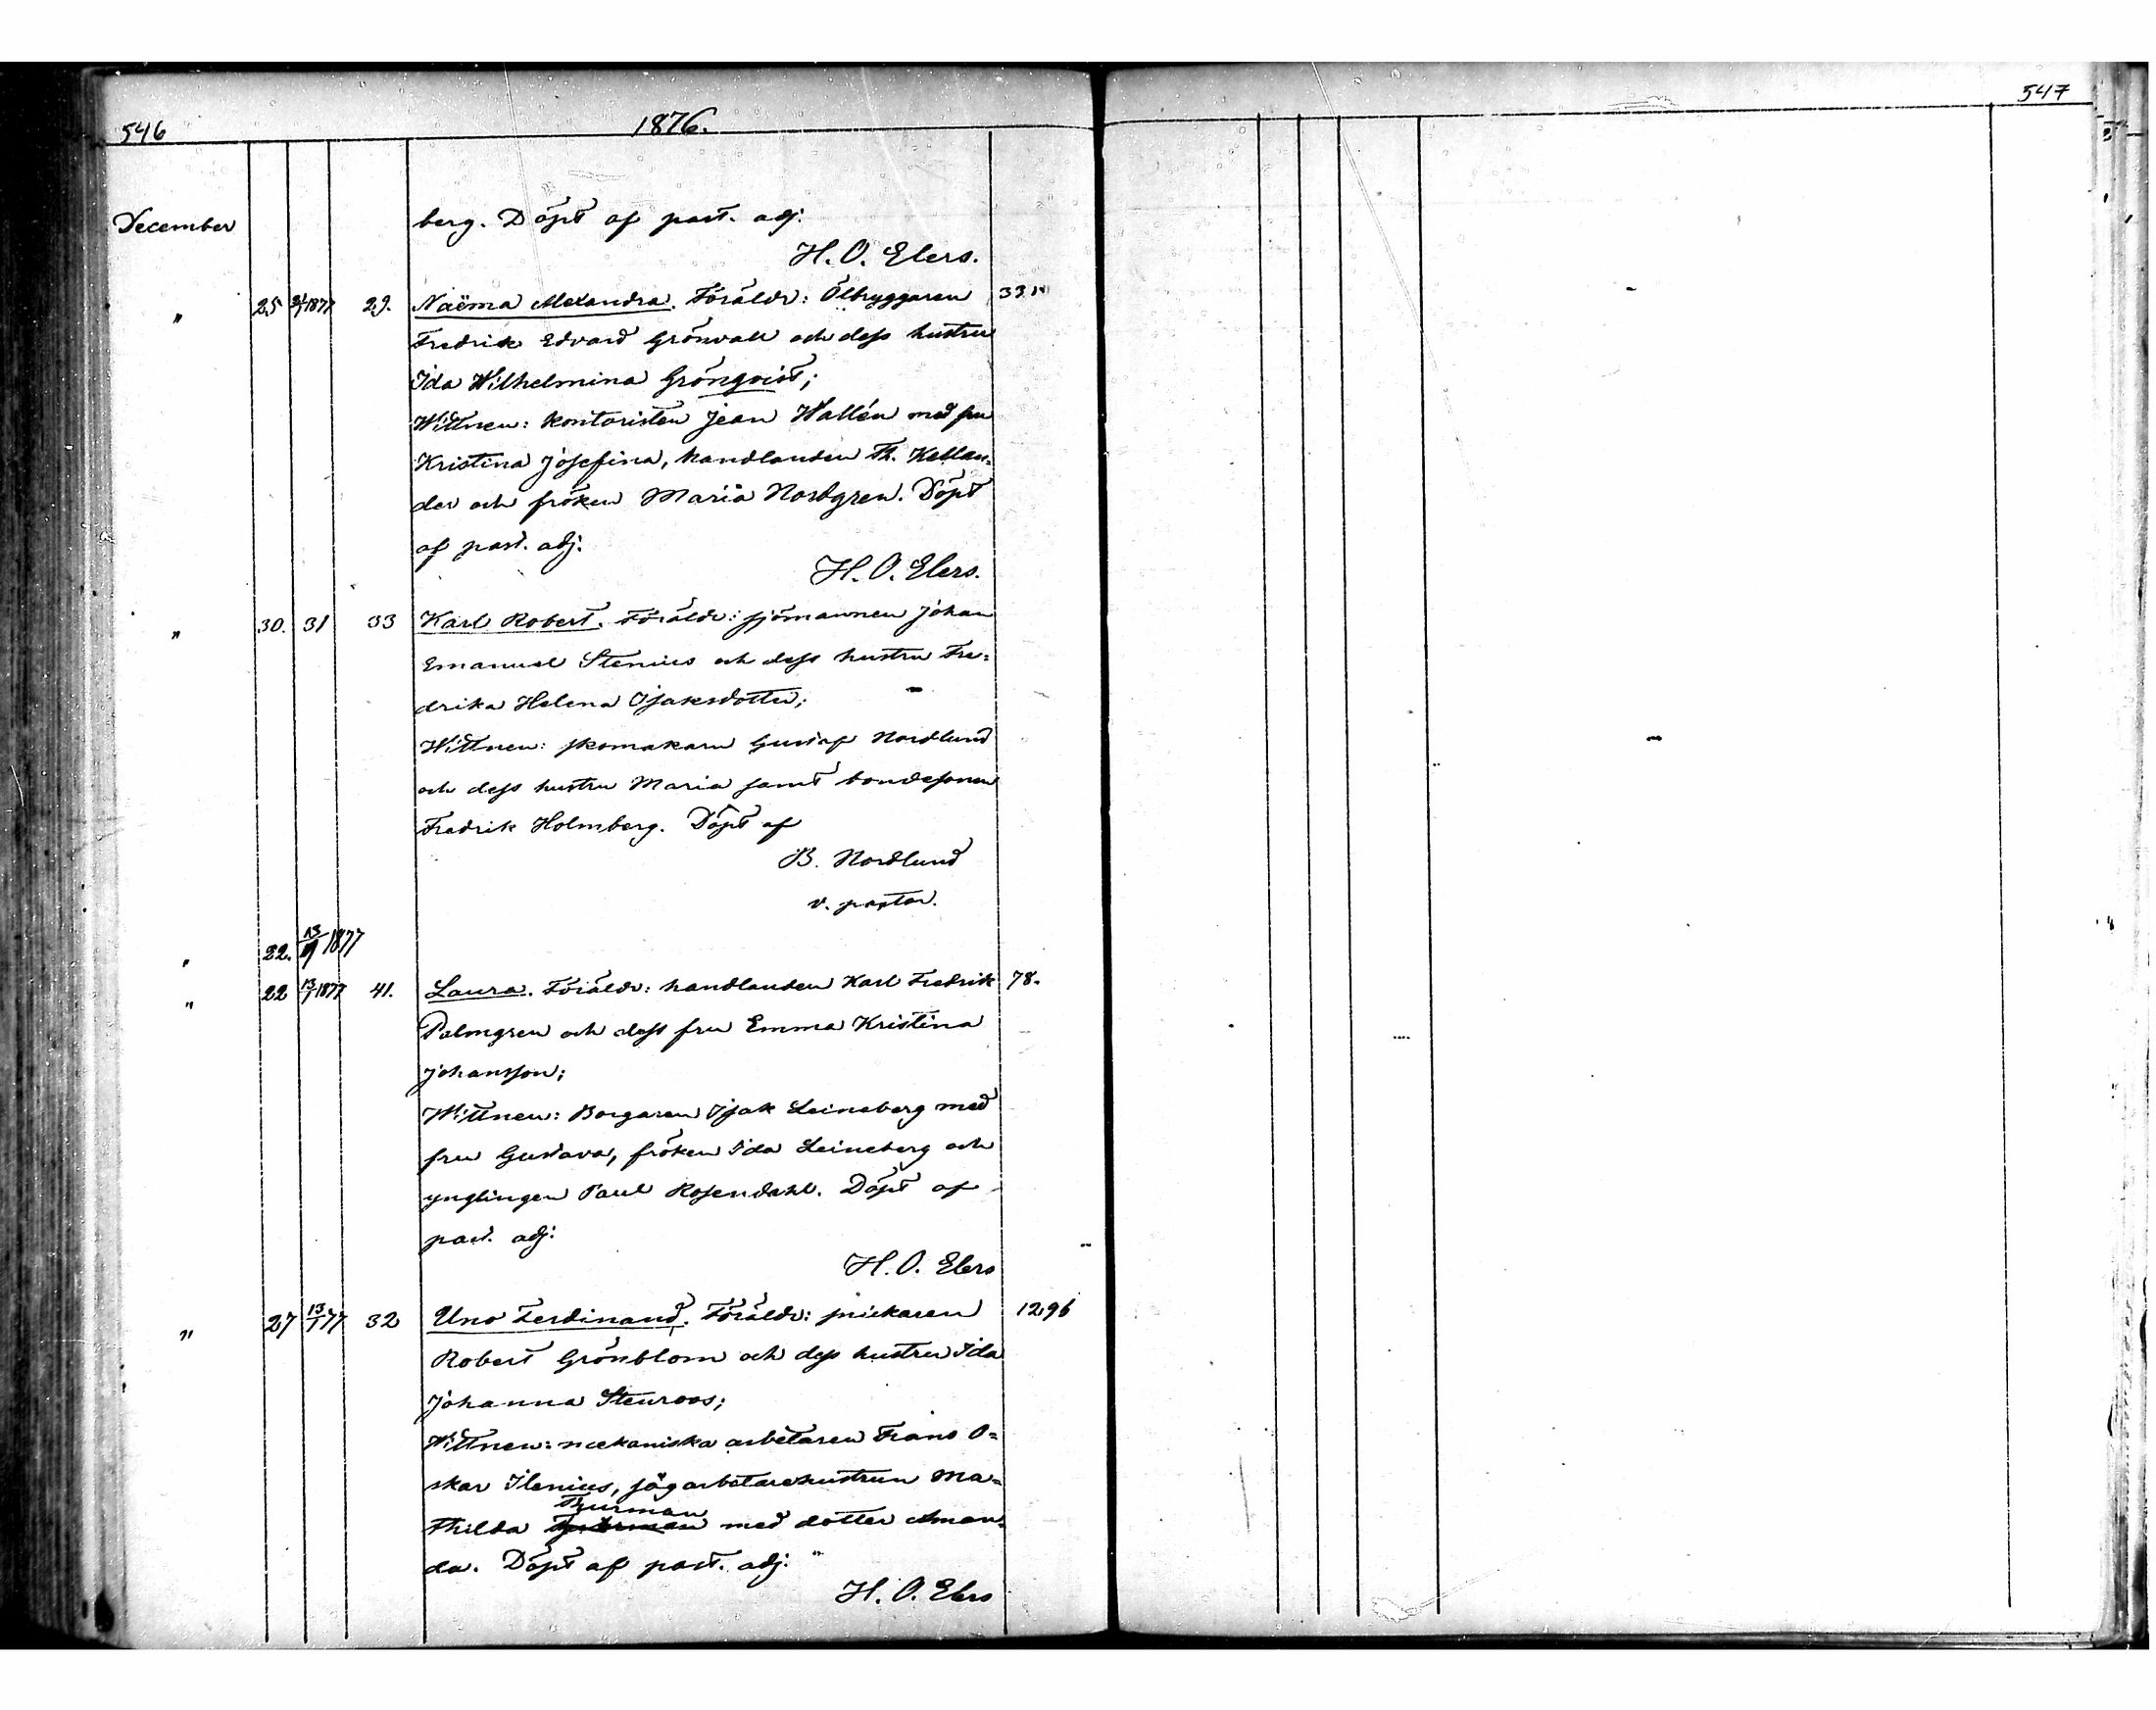 546 1876. 547
December berg. Döpt af past. adj.
H. O. Elers.
" 25 1877 29. Naëma Alexandra. Föräldr: Ölbryggaren
Fredrik Edvard Grönvall och dess hustru
Ida Wilhelmina Grönqvist;
Wittnen: kontoristen Jean Wallén med fru
Kristina Josefina, handlanden Th. Kellan=
der och fröken Maria Nordgren. Döpt
af past. adj.
H. O. Elers.
" 30. 31 33 Karl Robert. Föräldr: sjömannen Johan
Emanuel Stenius och dess hustru Fre=
drika Helena Isaksdotter;
Wittnen: skomakaren Gustaf Nordlund
och dess hustru Maria samt bondesonen
Fredrik Holmberg. Döpt af
B. Nordlund
v. pastor.
" 22. 13/1 1877
" 22 13/1 1877 41. Laura. Föräldr: handlanden Karl Fredrik 78.
Palmgren och dess fru Emma Kristina
Johansson;
Wittnen: Borgaren Isak Leineberg med
fru Gustava, fröken Ida Leineberg och
ynglingen Paul Rosendahl. Döpt af
past. adj.
H. O. Elers
" 27 13/1 77 32 Uno Ferdinand. Föräldr: prickaren 1296
Robert Grönblom och dess hustru Ida
Johanna Stenroos;
Wittnen: mekaniska arbetaren Frans O=
skar Ilenius, sågarbetarehustrun Ma=
Thurman
thilda med dotter Aman=
da. Döpt af past. adj.
H. O. Elers